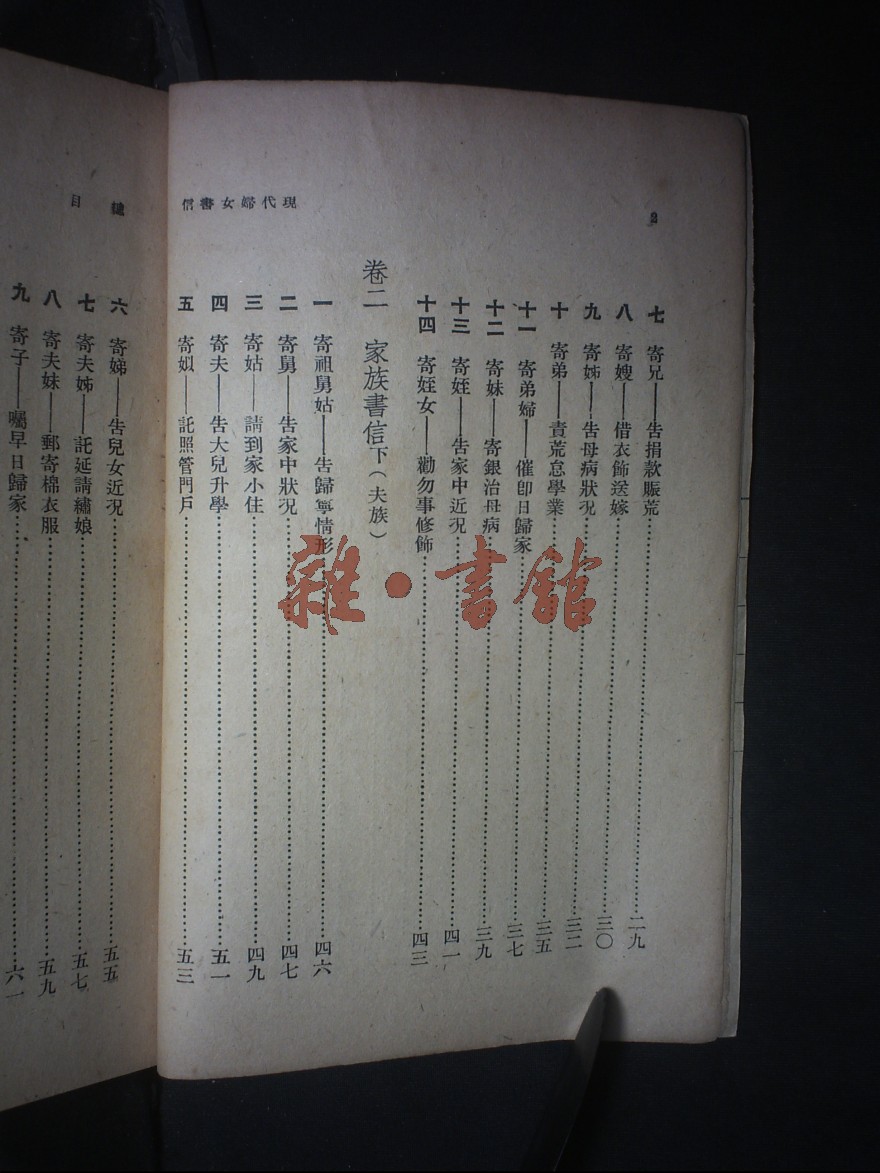 2
現代婦女書信
七 寄兄——告捐款賑荒……二九
八 寄嫂——借衣飾送嫁……三〇
九 寄姊——告母病狀况……三二
十 寄弟——責荒怠學業……三五
十一 寄弟婦——催卽日歸家……三七
十二 寄妹——寄銀治母病……三九
十三 寄姪——告家中近况……四一
十四 寄姪女——勸勿事修飾……四三
卷二 家族書信下(夫族)
一 寄祖舅姑——告歸寧情形……四六
二 寄舅——告家中狀况……四七
三 寄姑——請到家小住……四九
四 寄夫——告大兒升學……五一
五 寄姒——託照管門戶……五三
總目
六 寄娣——告兒女近况……五五
七 寄夫姊——託延請繡娘……五七
八 寄夫妹——郵寄棉衣服……五九
九 寄子——囑早日歸家……六一
雜·書館